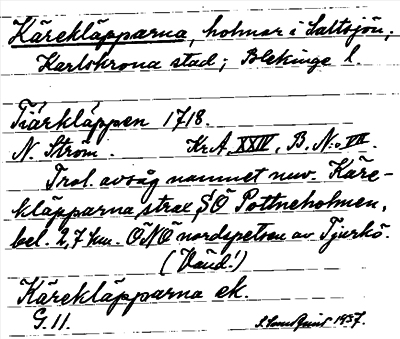 Kärekläpparna, holmar i Saltsjön,
Karlskrona stad; Blekinge l.
Tiärkläppen 1718.
N. Ström. Kr.A. XXIV, B. N:o VII.
Trol. avsåg namnet nuv. Käre-
kläpparna strax SÖ Pottneholmen,
bel. 2,7 km. ÖNÖ nordspetsen av Tjurkö.
(Vänd!)
Kärekläpparna ek.
G. 11. 1937.